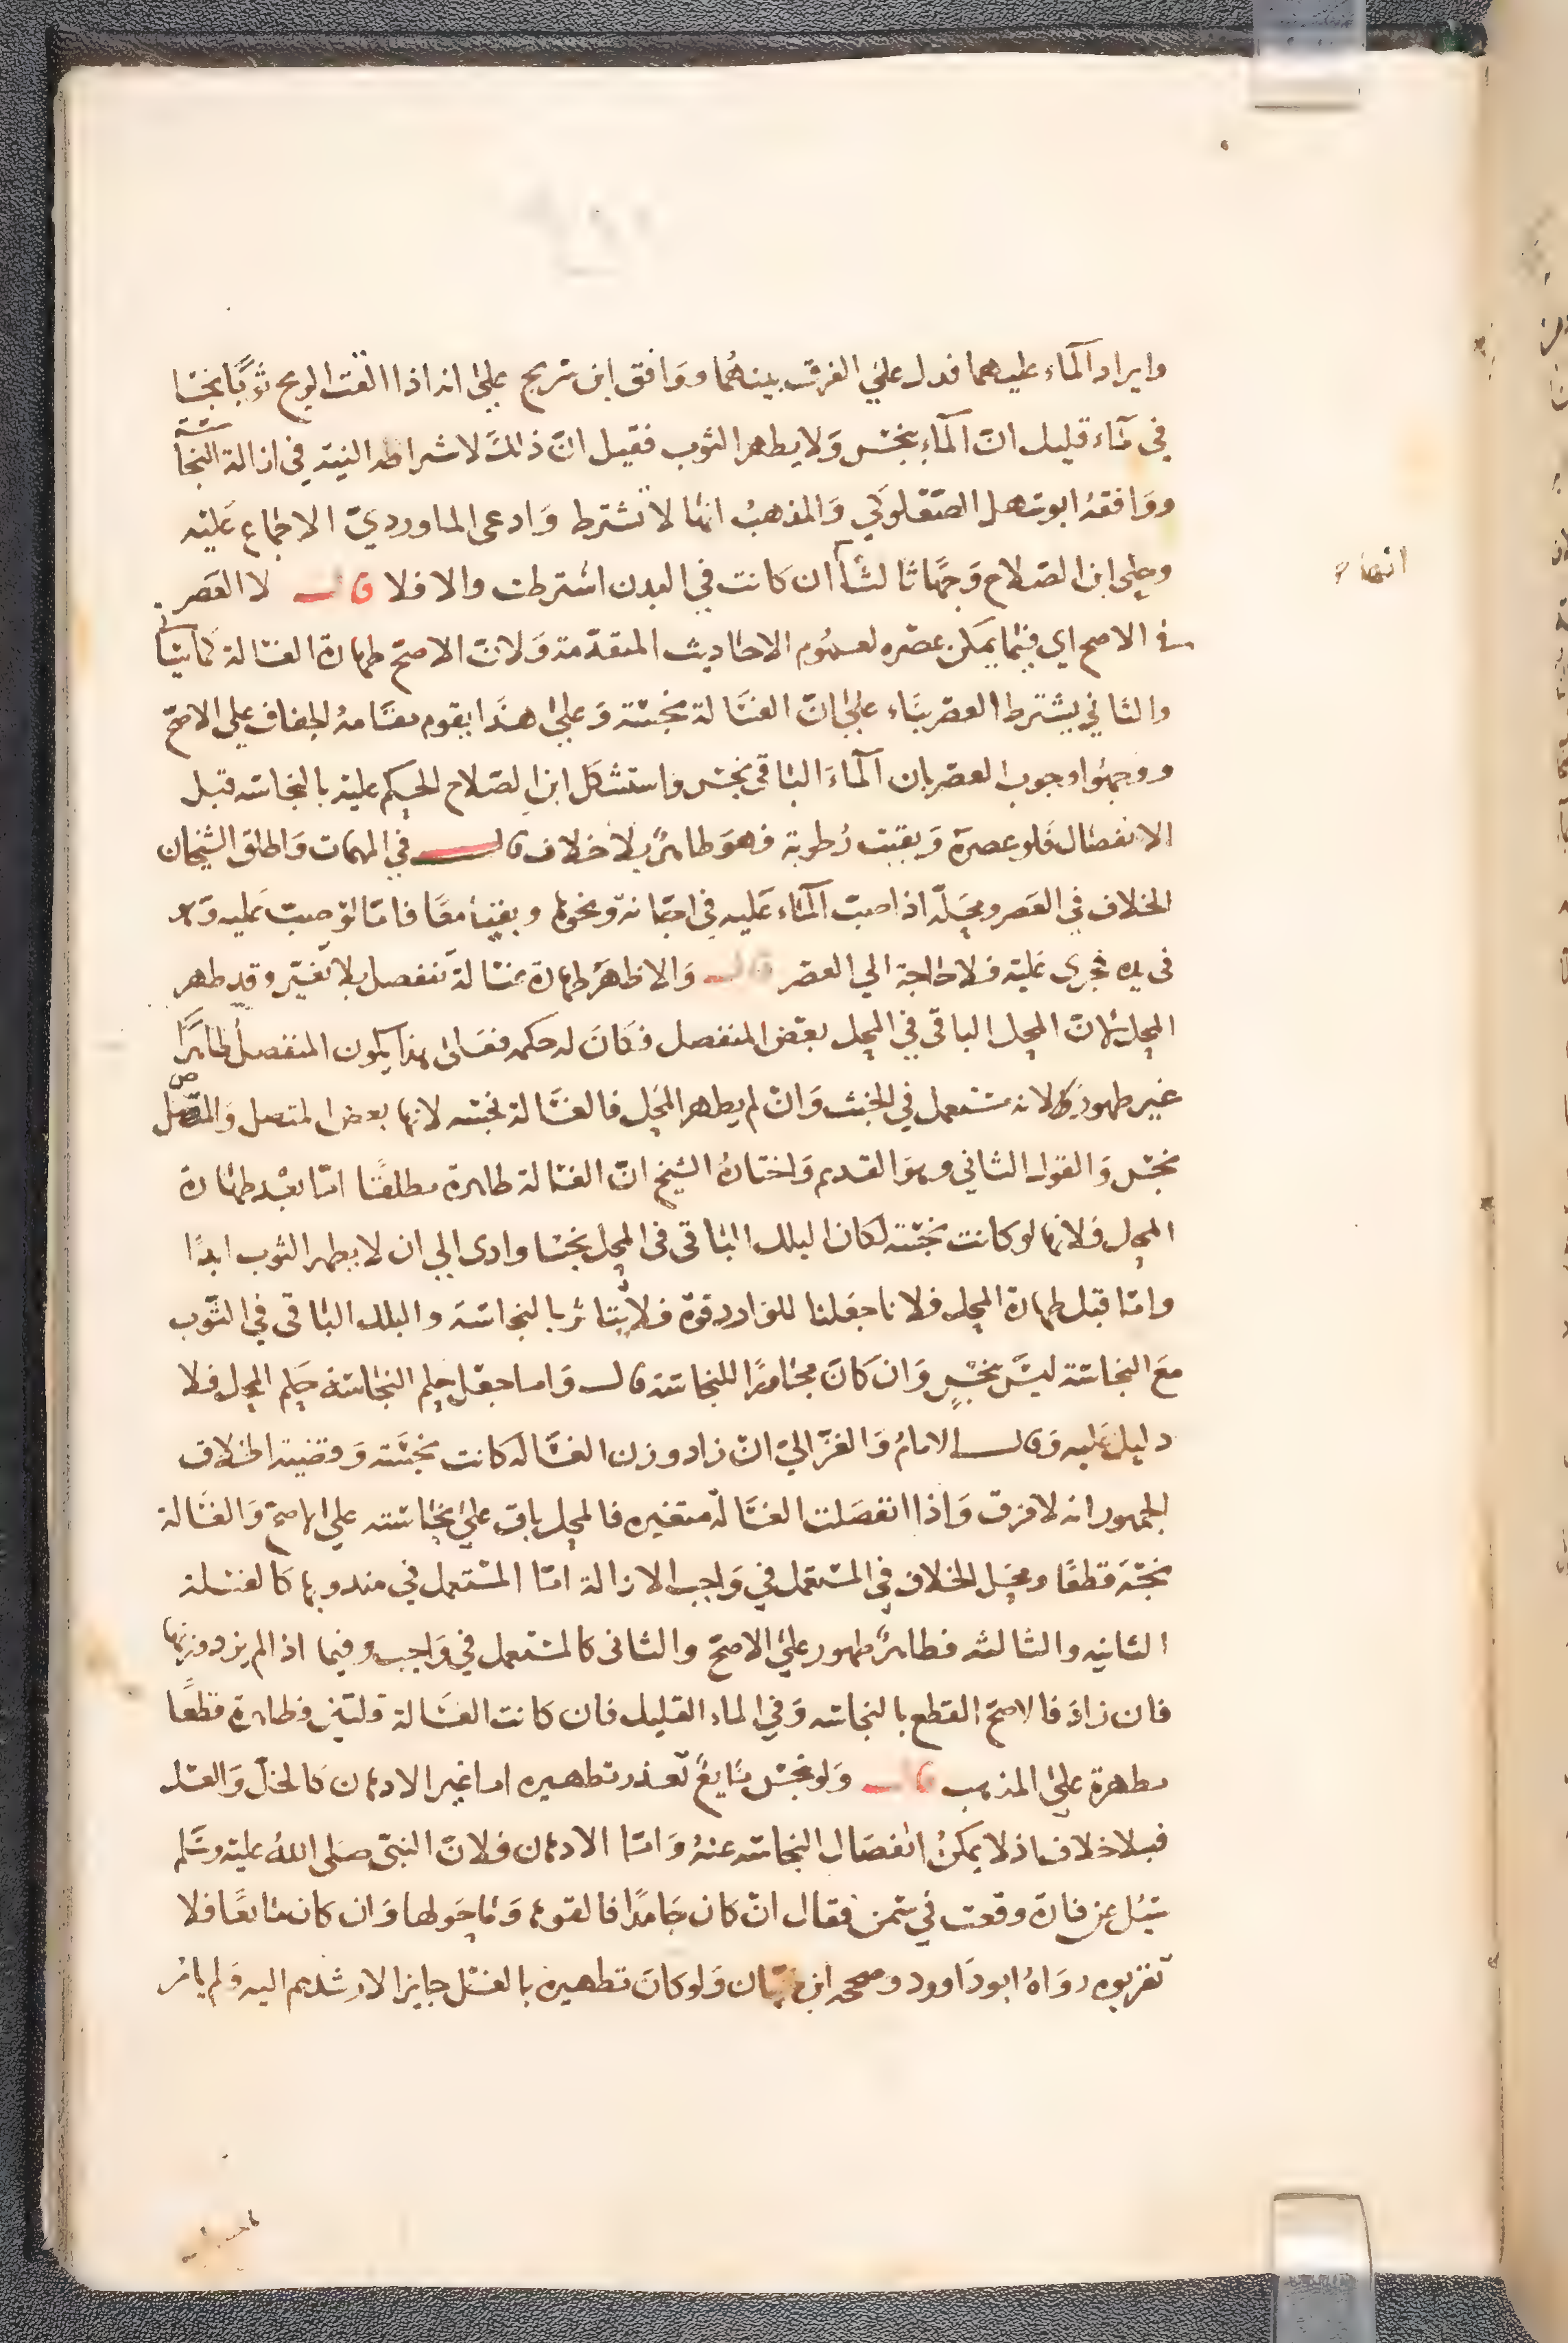 وايراد المآء عليهما فدل علي الفرق بينهما ووافق ابن سريج علي انه اذا القت الريح ثوبًا نجسا
في مآء قليل ان المآء نجس ولا يطهر الثوب فقيل ان ذلك لاشتراطه النية في ازالة النجاسة
ووافقهُ ابو سهل الصعلوكي والمذهبُ انها لا تشترط وادعى الماوردي الاجماع عليه
وحكي ابن الصلاح وجهًا ثالثًا ان كانت في البدن اشترطت والا فلا قال لا العصر
انها
في الاصح اي فيما يمكن عصره لعموم الاحاديث المتقدمة ولان الاصح طهارة الغسالة كما سيأتي
والثاني يشترط العصر بناء علي ان الغسالة نجسة وعلي هذا يقوم مقامه الجفاف علي الاصح
ووجهوا وجوب العصر بان المآء الباقي نجس واستشكل ابن الصلاح الحكم عليه بالنجاسه قبل
الانفصال فلو عصره وبقيت رطوبة فهو طاهرٌ بلا خلاف قال في المهمات واطلق الشيخان
الخلاف في العصر ومحله اذا صب المآء عليه في اجانة ونحوها وبقيا معًا فاما لو صب عليه وهو
في يده فجرى عليه فلا حاجة الي العصر قال والاظهر طهارة غسالة تنفصل بلا تغير وقد طهر
المحل لان البلل الباقي في المحل بعض المنفصل فكان له حكمه فعلى هذا يكون المنفصل طاهرًا
غير طهور لانه مستعمل في الخبث وان لم يطهر المحل فالغسالة نجسه لانها بعض المتصل والمتصل
نجس والقول الثاني وهو القديم واختاره الشيخ ان الغسالة طاهرة مطلقًا امّا بعد طهارة
المحل فلانها لو كانت نجسة لكان البلل الباقي في المحل نجسا وادى الي ان لا يطهر الثوب ابدًا
وامّا قبل طهارة المحل فلانا جعلنا للوارد قوة فلا يتاثر بالنجاسة والبلل الباقي في الثوب
مع النجاسة ليس بنجسٍ وان كان مجاورًا للنجاسة قال واما جعل حكم النجاسة حكم المحل فلا
دليل عليه وقال الامامُ والغزالي ان زاد وزن الغسالة كانت نجسة وقضية اطلاق
الجمهور انه لا فرق واذا انفصلت الغسالة متغيره فالمحل باق علي نجاسته علي الاصح والغسالة
نجسة قطعًا ومحل الخلاف في المستعمل في واجب الازالة امّا المستعمل في مندوبها كالغسلة
الثانيه والثالثه فطاهرٌ طهور علي الاصح والثاني كالمستعمل في واجب وفيما اذا لم يزد وزنها
فان زاد فالاصح القطع بالنجاسه وفي الماء القليل فان كانت الغسالة قلتين فطاهرة قطعًا
مطهرة علي المذهب قال ولو نجس مايعٌ تعذر تطهيره اما غير الادهان كالخل والعسل
فبلا خلاف اذ لا يمكن انفصال النجاسه عنهُ وامّا الادهان فلان النبي صلى الله عليه وسلم
سُئل عن فارة وقعت في سمن فقال ان كان جامدًا فالقوها وما حولها وان كان مائعًا فلا
تقربوه رواهُ ابو داوود وصححه ابن حبان ولو كان تطهيره بالغسل جايزا لارشدهم اليه ولم يامر